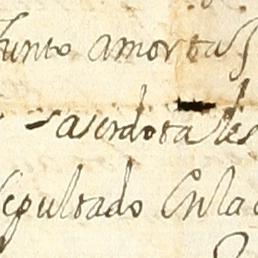 Junto amortas
saserdotales
sepultado Enla